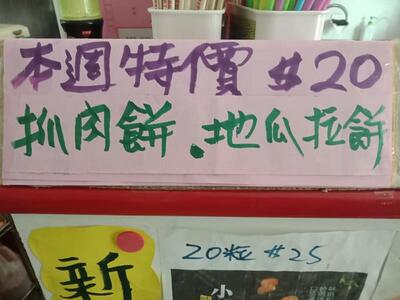 本週特價 #20
抓肉餅.地瓜拉餅
20粒 #25
新
小